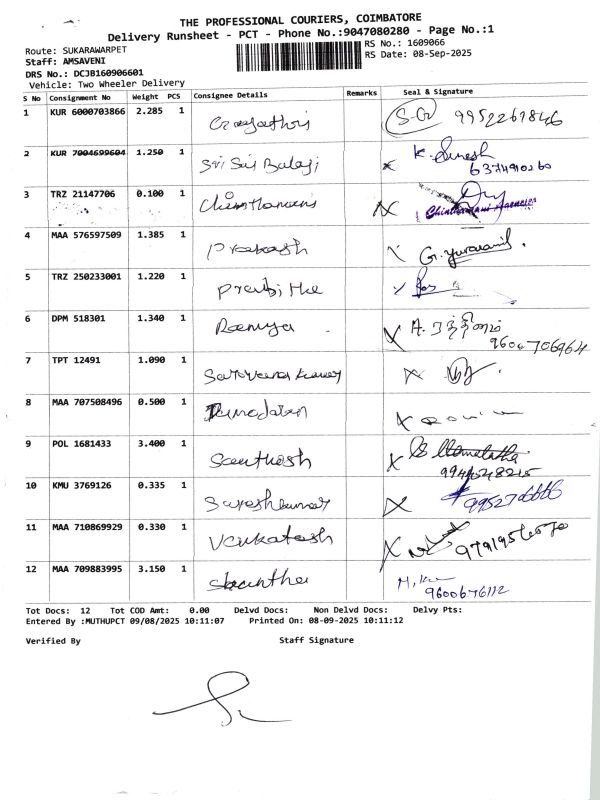 THE PROFESSIONAL COURIERS, COIMBATORE
Delivery Runsheet - PCT - Phone No.:9047080280 - Page No.:1
Route: SUKARAWARPET
RS No.: 1609066
Staff: AMSAVENI
RS Date: 08-Sep-2025
DRS No.: DCJB160906601
Vehicle: Two Wheeler Delivery
S No Consignment No Weight PCS Consignee Details Remarks Seal & Signature
1 KUR 6000703866 2.285 1 Gayathri
2 KUR 7004699604 1.250 1 Sri Sai Balaji K. Suresh
3 TRZ 21147706 0.100 1 Chinthamani Chinthamani Agencies
4 MAA 576597509 1.385 1 Prakash
5 TRZ 250233001 1.220 1
6 DPM 518301 1.340 1 Ramya
7 TPT 12491 1.090 1
8 MAA 707508496 0.500 1
9 POL 1681433 3.400 1 Santhosh
10 KMU 3769126 0.335 1 Sureshkumar
11 MAA 710869929 0.330 1 Venkatesh
12 MAA 709883995 3.150 1 9600676112
Tot Docs: 12 Tot COD Amt: 0.00 Delvd Docs: Non Delvd Docs: Delvy Pts:
Entered By :MUTHUPCT 09/08/2025 10:11:07 Printed On: 08-09-2025 10:11:12
Verified By Staff Signature